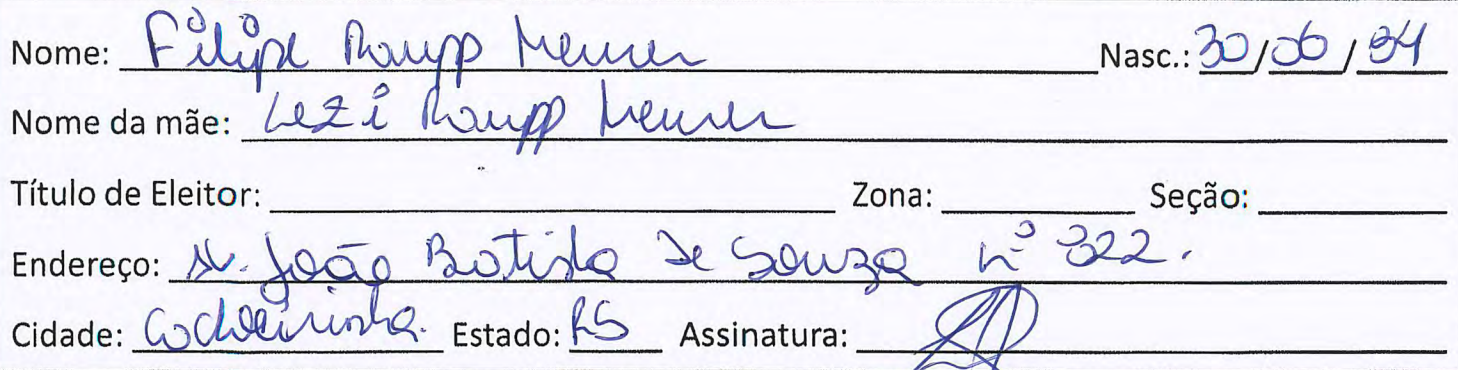 Nome: Filipe Raupp Memer Nasc.: 30/06/94
Nome da mãe: Lezi Raupp Memer
Título de Eleitor: Zona: Seção:
Endereço: Av. João Batista de Souza nº 322.
Cidade: Cachoeirinha. Estado: RS Assinatura: